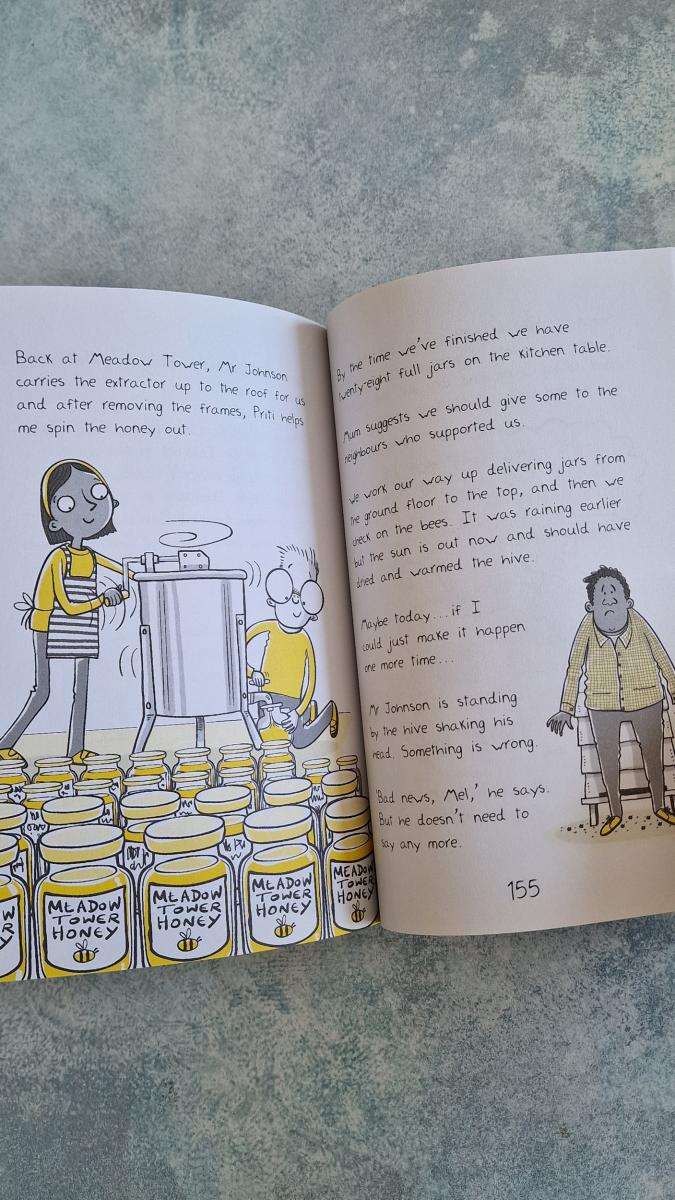 Back at Meadow Tower, Mr Johnson
carries the extractor up to the roof for us
and after removing the frames, Priti helps
me spin the honey out.
MEADOW
TOWER
HONEY
MEADOW
TOWER
HONEY
MEADOW
TOWER
HONEY
MEADOW
TOWER
HONEY
By the time we've finished we have
twenty-eight full jars on the kitchen table.
Mum suggests we should give some to the
neighbours who supported us.
We work our way up delivering jars from
the ground floor to the top, and then we
check on the bees. It was raining earlier
but the sun is out now and should have
dried and warmed the hive.
Maybe today...if I
could just make it happen
one more time...
Mr Johnson is standing
by the hive shaking his
head. Something is wrong.
'Bad news, Mel,' he says.
But he doesn't need to
say any more.
155